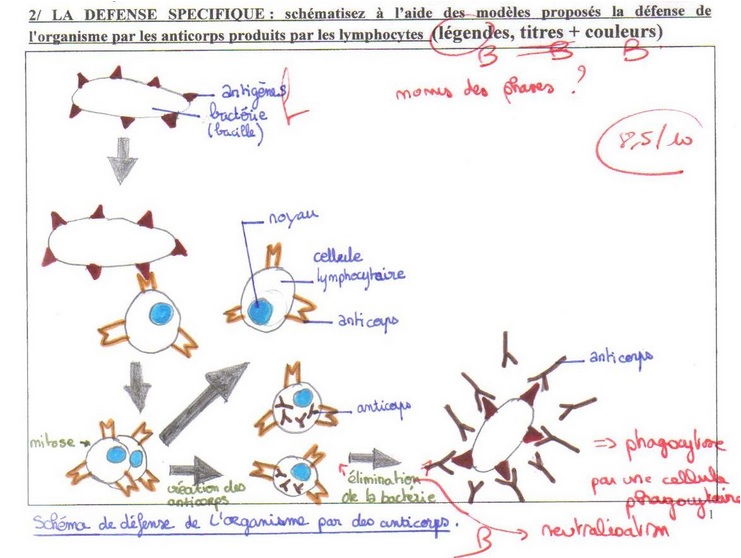 2/ LA DEFENSE SPECIFIQUE : schématisez à l'aide des modèles proposés la défense de
l'organisme par les anticorps produits par les lymphocytes (légendes, titres + couleurs)
B B B
antigènes
bactérie
(bacille)
noms des phases ?
8,5/10
noyau
cellule
lymphocytaire
anticorps
anticorps
anticorps
mitose
création des
anticorps
élimination
de la bactérie
=> phagocytose
par une cellule
phagocytaire
neutralisation
B
Schéma de défense de l'organisme par des anticorps.
1